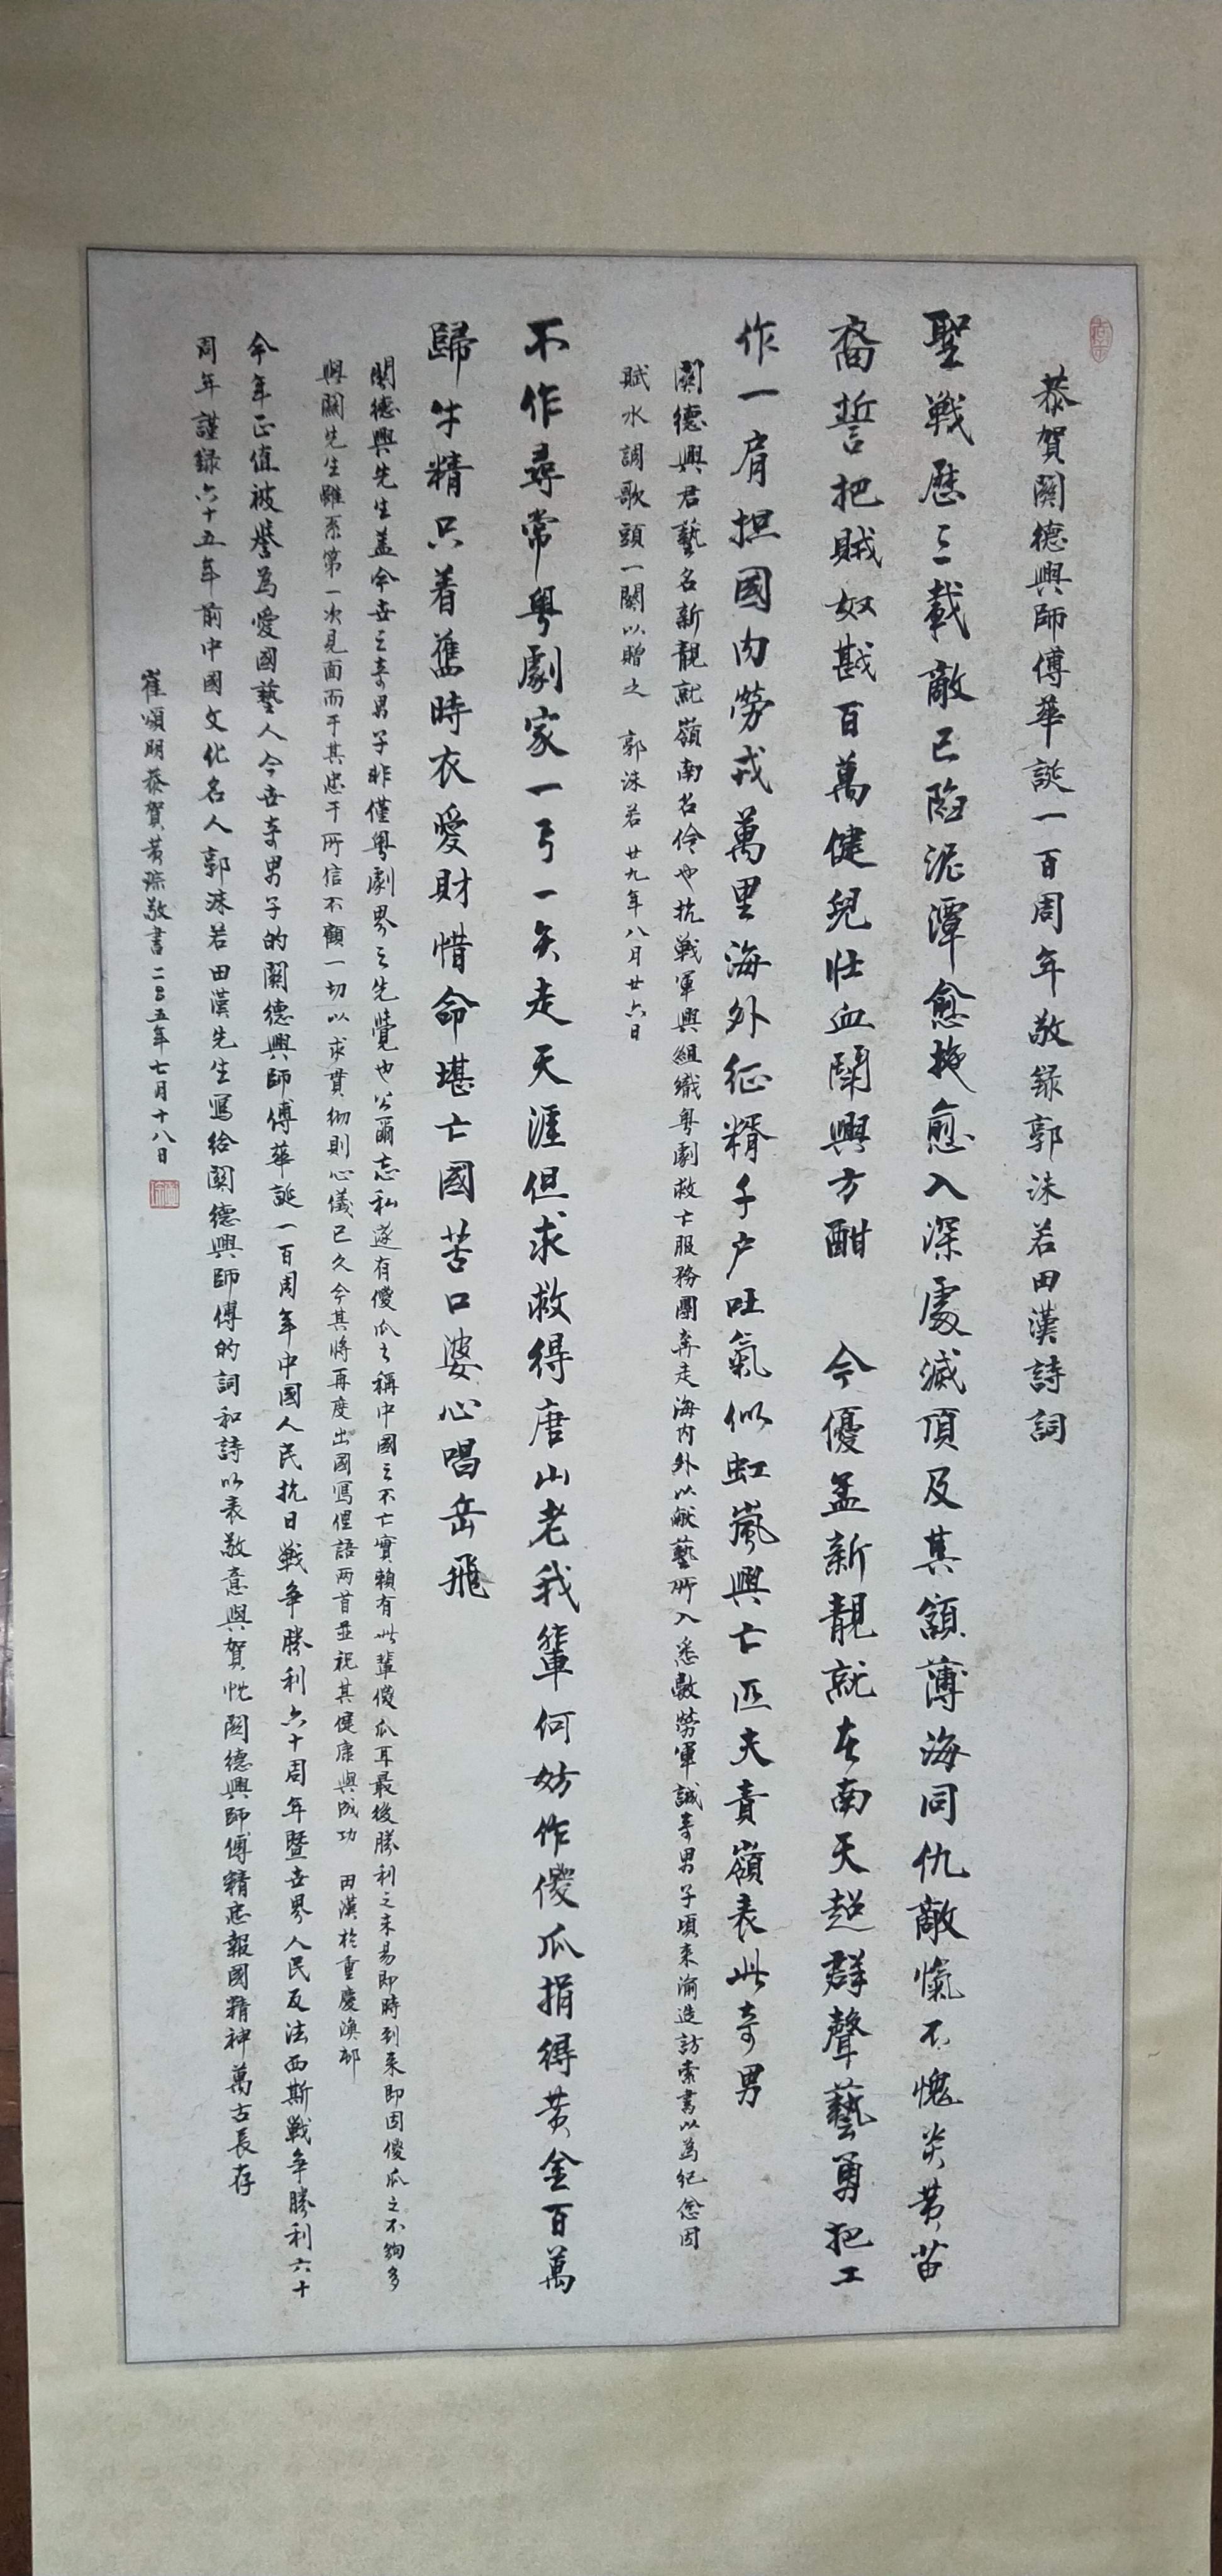 恭賀關德興師傅華誕一百周年敬録郭沫若田漢詩詞
聖戦歷三載敵已陷泥潭愈掙愈入深處滅頂及其額薄海同仇敵愾不愧炎黄苗
裔誓把賊奴戡百萬健兒壯血鬪興方酣 今優孟新靚就在南天超群聲藝勇把工
作一肩担國内勞戎萬里海外征糈千户旺氣似虹嵐興亡匹夫責嶺表此奇男
關德興君藝名新靚就嶺南名伶也抗戦軍興組織粤劇救亡服務團奔走海内外以献藝所入悉數勞軍誠奇男子頃來渝造訪索書以為紀念因
賦水調歌頭一闋以贈之 郭沫若 廿九年八月廿六日
不作尋常粤劇家一弓一矢走天涯但求救得唐山老我輩何妨作傻瓜捐得黄金百萬
歸牛精只着舊時衣愛財惜命堪亡國苦口婆心唱岳飛
關德興先生蓋今世之奇男子非僅粤劇界之先覺也公爾忘私遂有傻瓜之稱中國之不亡實賴有此輩傻瓜耳最後勝利之未易即時到来即因傻瓜之不夠多
與關先生雖系第一次見面而于其忠于所信不顧一切以求貫彻則心儀已久今其將再度出國寫俚語两首並祝其健康與成功 田漢於重慶漁邨
今年正值被譽為愛國藝人今世奇男子的關德興師傅華誕一百周年中國人民抗日戦争勝利六十周年暨世界人民反法西斯戦争勝利六十
周年謹録六十五年前中國文化名人郭沫若田漢先生寫给關德興師傅的詞和詩以表敬意與賀忱關德興師傅精忠報國精神萬古長存
崔頌明恭賀黄琮敬書二〇〇五年七月十八日